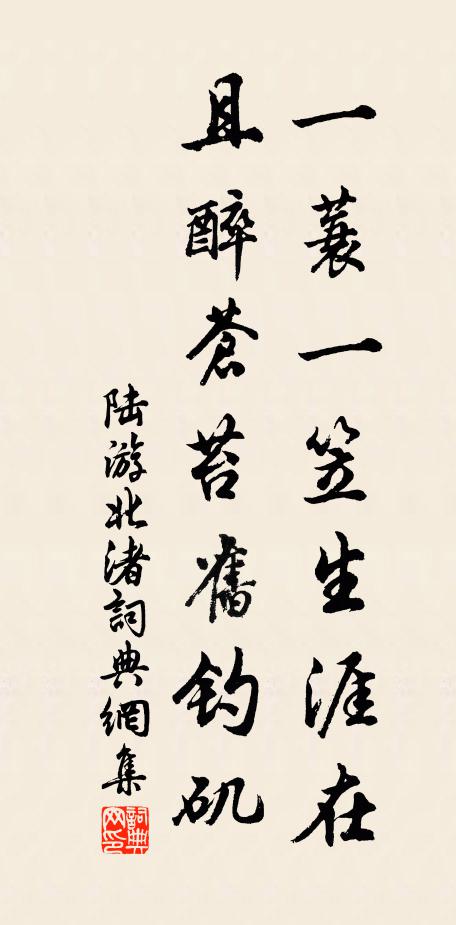 一蓑一笠生涯在
且醉蒼苔舊釣矶
陆游北渚詞典網集
詞典网印